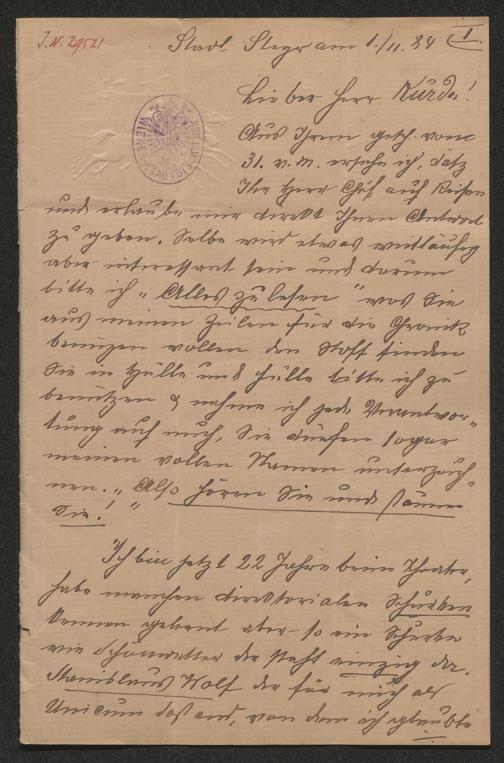 J.N. 29521
Stadt Steyr am 1./11. 84 I.
Lieber Herr Kurda!
Aus Ihrem gesch. vom
31. v. M. ersehe ich, daß
Ihr Herr Chef auf Reisen
und erlaube mir direkt Ihnen Antwort
zu geben. Selbe wird etwas weitläufig
aber interessant sein und darum
bitte ich „Alles zu lesen" was Sie
aus meinen Zeilen für die Chronik
benuzen wollen den Stoff finden
Sie in Hülle und Fülle bitte ich zu
benützen & nehme ich jede Verantwor-
tung auf mich, Sie dürfen sogar
meinen vollen Namen unterzeich-
nen. „Also hören Sie und staunen
Sie!"
Ich bin jetzt 22 Jahre beim Theater,
habe manchen direktorialen Schurken
kennen gelernt aber so ein Schurke
wie Schönwetter der steht einzig da.
Stanislaus Wolf der für mich als
Unicum dastand, von dem ich glaubte